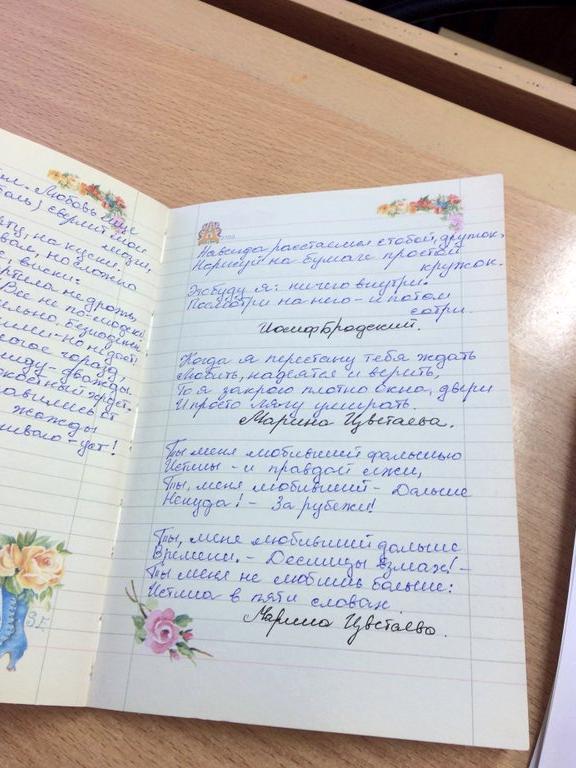 ил. Любовь еще
боль) сверлит мои
мозги,
рту, на куски.
овал, но сложно
е, виски:
ортила не дрожь,
Все не по-людски
ильно, безнадежно
ими - но не даст!
ногое горазд,
ниду - дважды
окостный хруст,
лавились от
жажды
киваю - уст!
Навсегда расстаемся с тобой, дружок.
Нарисуй на бумаге простой
кружок.
Это буду я: ничего внутри.
Посмотри на него - и потом
сотри.
Иосиф Бродский.
Когда я перестану тебя ждать
Любить, надеятся и верить.
То я закрою плотно окна, двери
И просто лягу умирать.
Марина Цветаева.
Ты меня любивший фальшью
Истины - и правдой лжи,
Ты, меня любивший - Дальше
Некуда! - За рубежи!
Ты, меня любивший дольше
Времени. - Десницы взмах! -
Ты меня не любишь больше:
Истина в пяти словах.
Марина Цветаева.